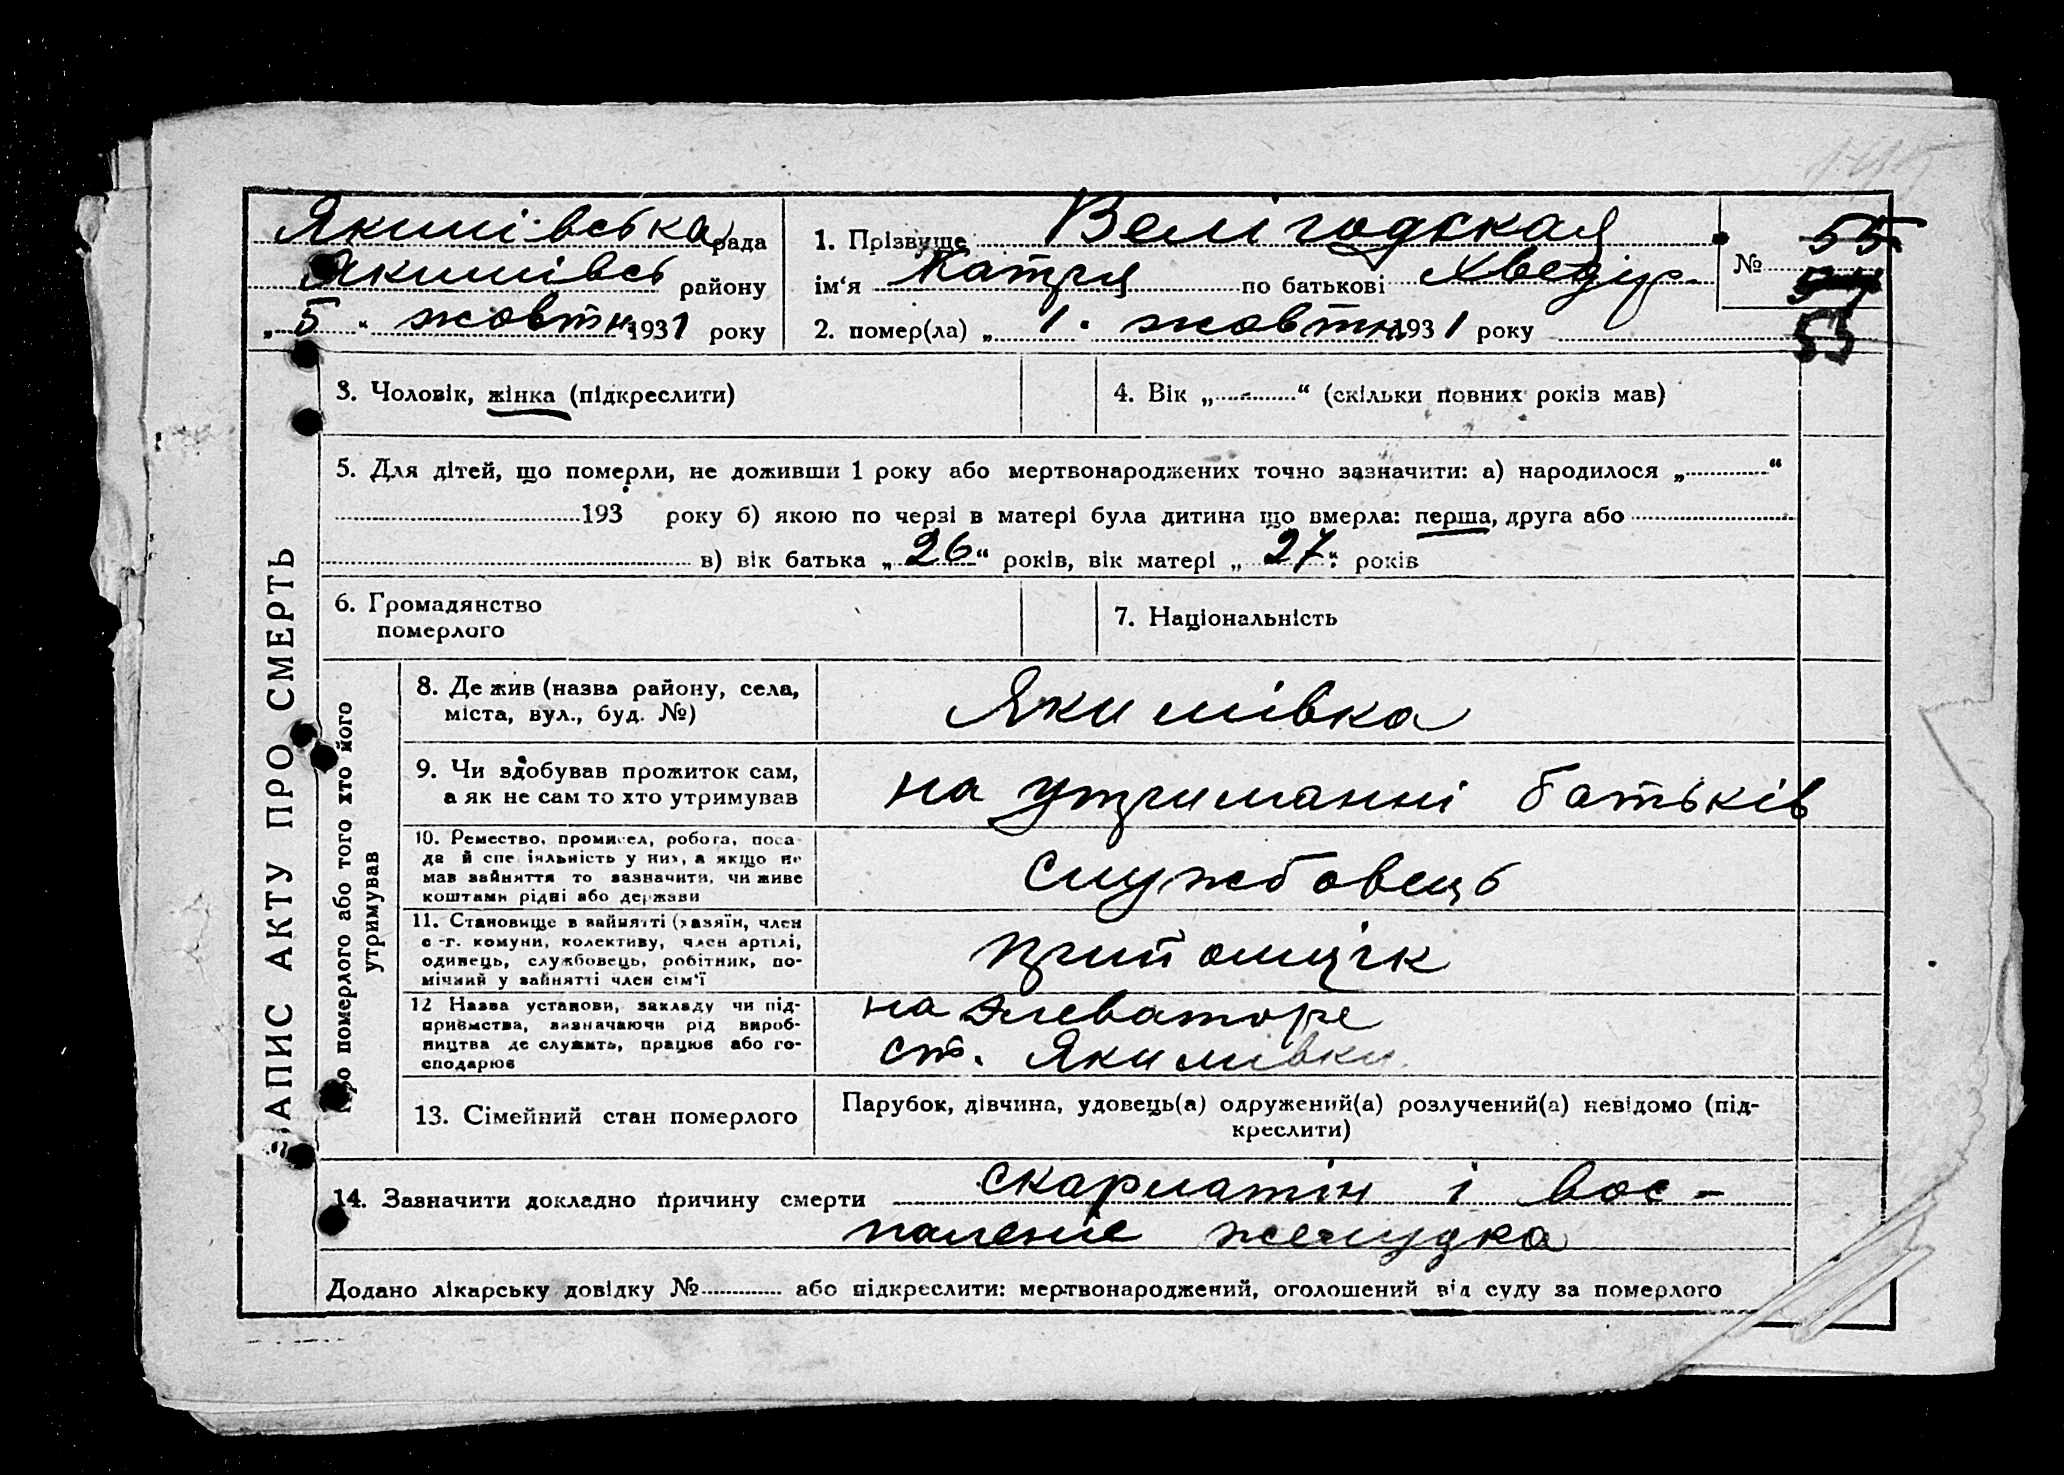 Якимівська рада
Якимівсь району
„ 5 “ жовтн 1931 року
1. Прізвуще Велігодская
ім‘я Катря по батькові Хведір.
2. помер(ла) „ 1 . жовтн 1931 року
№ 55
53
ЗАПИС АКТУ ПРО СМЕРТЬ
3. Чоловік, жінка (підкреслити)
4. Вік „ - “ (скільки повних років мав)
5. Для дітей, що померли, не доживши 1 року або мертвонароджених точно зазначити: а) народилося „ “
193 року б) якою по черзі в матері була дитина що вмерла: перша, друга або
в) вік батька „ 26 “ років, вік матері „ 27 “ років
6. Громадянство
померлого
7. Національність
Про померлого або того хто його
утримував
8. Де жив (назва району, села,
міста, вул., буд. №)
Якимівка
9. Чи здобував прожиток сам,
а як не сам то хто утримував
на утриманні батьків
10. Ремество, промисел, робота, поса-
да й спеціяльність у них, а якщо не
мав зайняття то зазначити, чи живе
коштами рідні або держави
службовець
11. Становище в зайнятті (хазяїн, член
с.-г. комуни, колективу, член артілі,
одинець, службовець, робітник, по-
мічний у зайнятті член сім‘ї
12 Назва установи, закладу чи під-
приємства, визначаючи рід вироб-
ництва де служить, працює або го-
сподарює
на элеваторе
ст. Якимівки
13. Сімейний стан померлого
Парубок, дівчина, удовець(а) одружений(а) розлучений(а) невідомо (під-
креслити)
14. Зазначити докладно причину смерти скарлатін і вос-
паленіе желудка
Додано лікарську довідку № або підкреслити: мертвонароджений, оголошений від суду за померлого